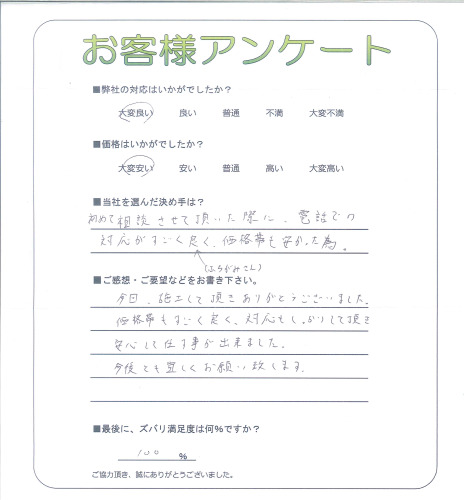 お客様アンケート
■弊社の対応はいかがでしたか？
大変良い 良い 普通 不満 大変不満
■価格はいかがでしたか？
大変安い 安い 普通 高い 大変高い
■当社を選んだ決め手は？
初めて相談させて頂いた際に、電話での
対応がすごく良く、価格帯も安かった為。
■ご感想・ご要望などをお書き下さい。
今日、施工して頂きありがとうございました。
価格帯もすごく良く、対応もしっかりして頂き
安心して任す事が出来ました。
今後とも宜しくお願い致します。
■最後に、ズバリ満足度は何％ですか？
100 ％
ご協力頂き、誠にありがとうございました。